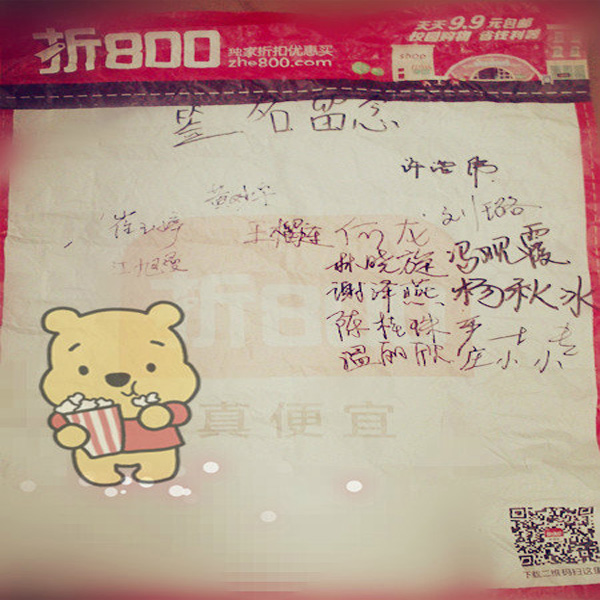 折800
独家折扣优惠买
zhe800.com
天天9.9元包邮
校园购物 省钱利器
shop
签名留念
许浩伟
黄水平
刘璐
崔玉婷
何龙
江旭曼
林晓旋
冯晚霞
谢泽燕
杨秋冰
陈桂珠
温丽欣
庄小小
折800
真便宜
下载二维码扫这里